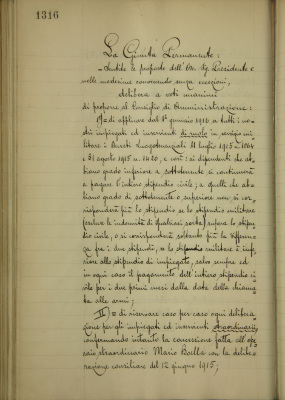 1316
La Giunta Permanente:
- Sentite le proposte dell'On. Sig. Presidente e
nelle medesime convenendo senza eccezioni,
delibera a voti unanimi
di proporre al Consiglio di Amministrazione:
I°= di applicare dal 1° gennaio 1916 a tutti i no-
stri impiegati ed inservienti di ruolo in servizio mi-
litare i Decreti Luogotenenziali 11 luglio 1915 - 1064
e 31 agosto 1915 n. 1420, e cioè: ai dipendenti che ab-
biano grado inferiore a sottotenente si continuerà
a pagare l'intero stipendio civile; a quelli che ab-
biano grado di sottotenente o superiore non si cor-
risponderà più lo stipendio se lo stipendio militare
(escluse le indennità di qualsiasi sorta) supera lo stipen-
dio civile, o si corrisponderà soltanto più la differen-
za fra i due stipendi, se lo stipendio militare è infe-
riore allo stipendio di impiegato, salvo sempre ed
in ogni caso il pagamento dell'intero stipendio ci-
vile per i due primi mesi dalla data della chiama-
ta alle armi;
II°= di riservare caso per caso ogni delibera-
zione per gli impiegati ed inservienti straordinarii,
confermando intanto la concessione fatta all'ope-
raio straordinario Mario Boella con la delibe-
razione consiliare del 12 giugno 1915;